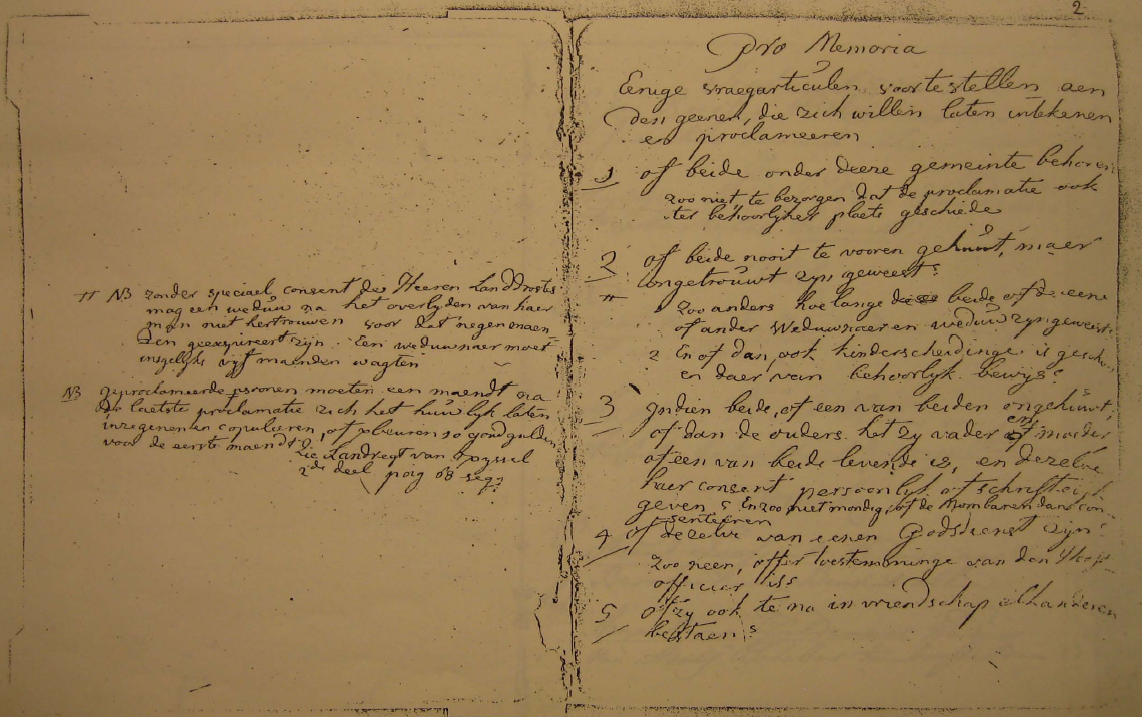 # NB zonder speciael consent des Heeren LandDrosts
mag een weduw na het overlyden van haer
man niet hertrouwen voor dat negen maen
den geexpireert zijn. Een weduwnaer moet
insgelyks vyf maenden wagten
NB geproclameerde persoonen moeten een maendt na
de laetste proclamatie zich het huwlyk laten
inzegenen en copulieren, of
voor de eerste maendt. Zie Landregt van
2de deel 68 seqq
2
Pro Memoria
Eenige vraegarticulen voor te stellen aen
den geenen, die zich willen laten intekenen
en proclameeren
1 of beide onder deeze gemeinte behoren
zoo niet, te bezorgen dat de proclamatie ook
ter behoorlyker plaets geschiede
2 of beide nooit te vooren gehuwt, maer
ongetrouwt zyn geweest?
# zoo anders hoe lange beide of de eene
of ander Weduwnaer en weduw zyn geweest
2 En of dan ook kinderscheidinge is
en daer van behoorlyk bewys?
3 Indien beide, of een van beiden ongehuwt,
of dan de ouders het zy vader en moeder
of een van beide levende is, en dezelve
haer consent persoonlyk of schriftelyk
geven? En zoo niet mondig, of de Mombaren dan con-
senteeren
4 of dezelve van eenen Godsdienst zijn?
zoo neen, of er toestemminge van den
officier is?
5 of zy ook te na in vriendschap elkanderen
bestaen?